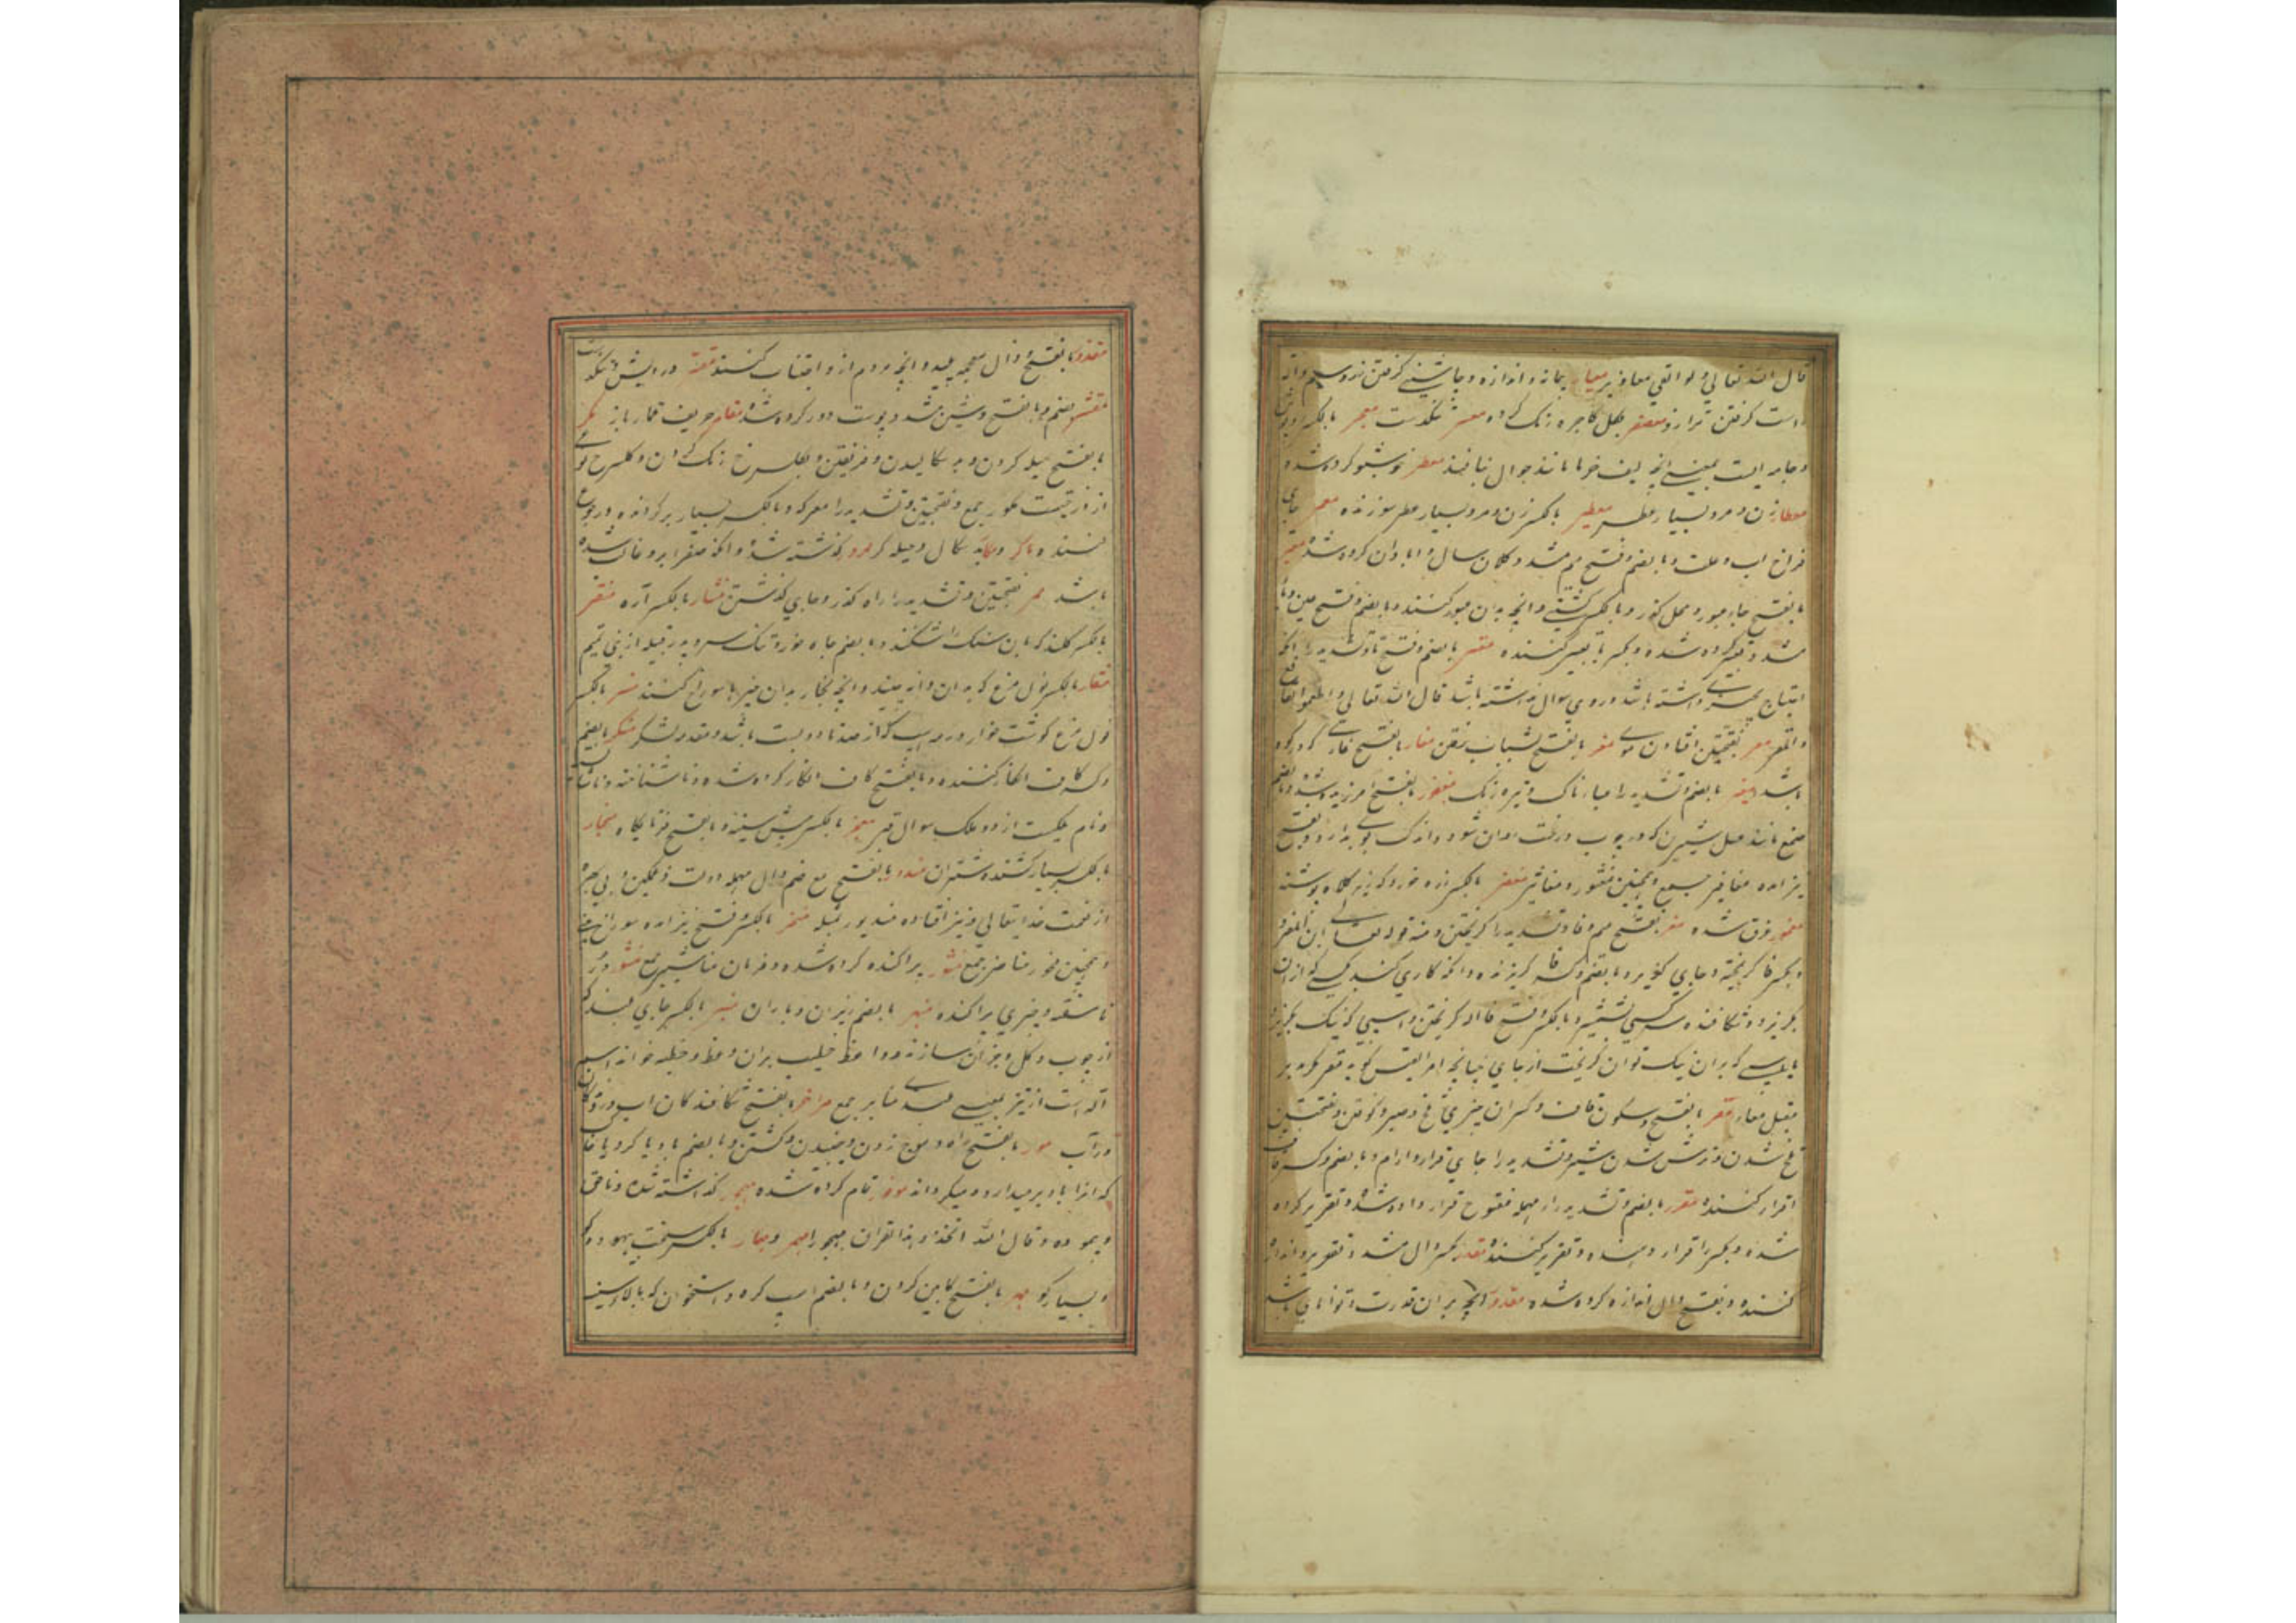 قال الله تعالی ولو القی معاذیره معیار پیمانه و اندازه و چاشنی گرفتن زر و سیم و
راست کردن ترازو معصفر بگل کاجره رنگ کرده معسر تنگدست معجر بالکسر
و جامه ایست یمنی و آنچه از لیف خرما مانند جوال بافند معطر خوشبو کرده شده
معطار زن و مرد بسیار عطر معطیر بالکسر زن و مرد بسیار عطر سوزنده معمر جای
فراخ آب و علف و بالضم و فتح میم مشدد کلان سال و ابادان کرده شده معبر
بالفتح جای عبور و محل گذر و بالکسر کشتی و آنچه بدان عبور کنند و بالضم و فتح عین و با
مشدد تعبیر کرده شده و بکسر با تعبیر کننده معتر بالضم و فتح تا و تشدید را آنکه
احتیاج داشته باشد و روی سوال نداشته باشد قال الله تعالی و اطعموا القانع
والمعتر معر بفتحتین افتادن موی مغر بالفتح بشتاب رفتن مغار بالفتح غاری که در کوه
باشد مغبر بالضم و تشدید را غبارناک و تیره رنگ مغفور بالفتح آمرزیده شده و بالضم
صمغ مانند عسل شیرین که در چوب درخت روان شود و اندک بوی بد دارد و بفتح
نیز آمده مغافیر جمع و همچنین مغثور و مغاثیر مغفر بالکسر زره خود که زیر کلاه پوشند
مغمور غرق شده مفر بفتح میم و فا و تشدید را گریختن و منه قوله تعالی این المفر
و بکسر فا گریختن و جای گریز و بالضم و کسر فا گریزنده و آنکه کاری کند که کسی از آن
بگریزد و شکافنده سر کسی بشمشیر و بالکسر و فتح فا آلت گریختن و اسبی که نیک بگریزد
یا اسپی که بر آن نیک توان گریخت از جای چنانچه امرء القیس گوید مفر مکر مدبر
مقبل مغار مقر بالفتح و سکون قاف و گران چیزی تلخ و صبر و کوفتن و بفتحتین
تلخ شدن و ترش شدن شیر و تشدید را جای قرار و آرام و بالضم و کسر قاف
اقرار کننده مقرر بالضم و تشدید را مهمله مفتوح قرار داده شده و تقریر کرده
شده و بکسر را قرار دهنده و تقریر کننده مقدر بکسر دال مشدد تقدیر و اندازه
کننده و بفتح دال اندازه کرده شده مقدور آنچه بر آن قدرت و توانائی باشد
مقذور بالفتح و ذال معجمه پلید و آنچه مردم از و اجتناب کنند مقتر درویش و تنگدست
مقشر بضم و بالفتح و شین مشدد پوست دور کرده شده مقامر حریف قمار باز مکر
بالفتح حیله کردن و بد سگالیدن و فریفتن و بگل سرخ رنگ کردن و گل سرخ
از ازتیست مکور جمع و بفتحتین و تشدید را معرکه و بالکسر بسیار برگردانده و رجوع
کننده ماکر و مکار بد سگال و حیله گر ممرور گذشته شده و آنکه صفرا برو غالب شده
باشد ممر بفتحتین و تشدید را راه گذر و جای گذشتن منشار بالکسر اره منقر
بالکسر کلند که بآن سنگ شکنند و بالضم چاه خورد تنگ سر و پدر قبیله از بنی تمیم
منقار بالکسر نول مرغ که بدان دانه چیند و آنچه نجار بدان چیزها سوراخ کند منسر بالکسر
نول مرغ گوشت خوار و رمه اسب که از صد تا دویست باشد و مقدمه لشکر منکر بالضم
و کسر کاف انکار کننده و بالفتح کاف انکار کرده شده و ناشناخته و ناشایسته
و نام یکیست از دو ملک سوال قبر منحر بالکسر پیش سینه و بالفتح قربانگاه منحار
بالکسر بسیار کشنده شتران مندور بالفتح مع ضم دال مهمله دولت و غمگین و بی بهره
از نعمت خدایتعالی و نیز افتاده مندبور مثله منخر بالکسر و فتح نیز آمده سوراخ بینی
و همچنین منخور مناخر جمع منشور پراکنده کرده شده و فرمان مناشیر جمع منثور در
ناسفته و چیزی پراکنده منهمر بالضم ریزان و باران منبر بالکسر جای بلند که
از چوب و گل و جز آن سازند و واعظ و خطیب بران وعظ و خطبه خواند
آلت از نبر بمعنی بلندی منابر جمع مواخر بالفتح شکافندگان آب و رفتگان
در آب مور بالفتح راه و موج زدن و جنبیدن و گشتن و بالضم باد یا گرد یا خاک
که آنرا باد بر میدارد و میگرداند موفور تمام کرده شده مهجور گذاشته شده و ناحق
و بیهوده و قال الله اتخذوا هذا القران مهجورا مهمر و مهمار بالکسر سخت بیهوده گو
و بسیار گو مهر بالفتح کابین کردن و بالضم اسپ کره و استخوان که بالای سینه